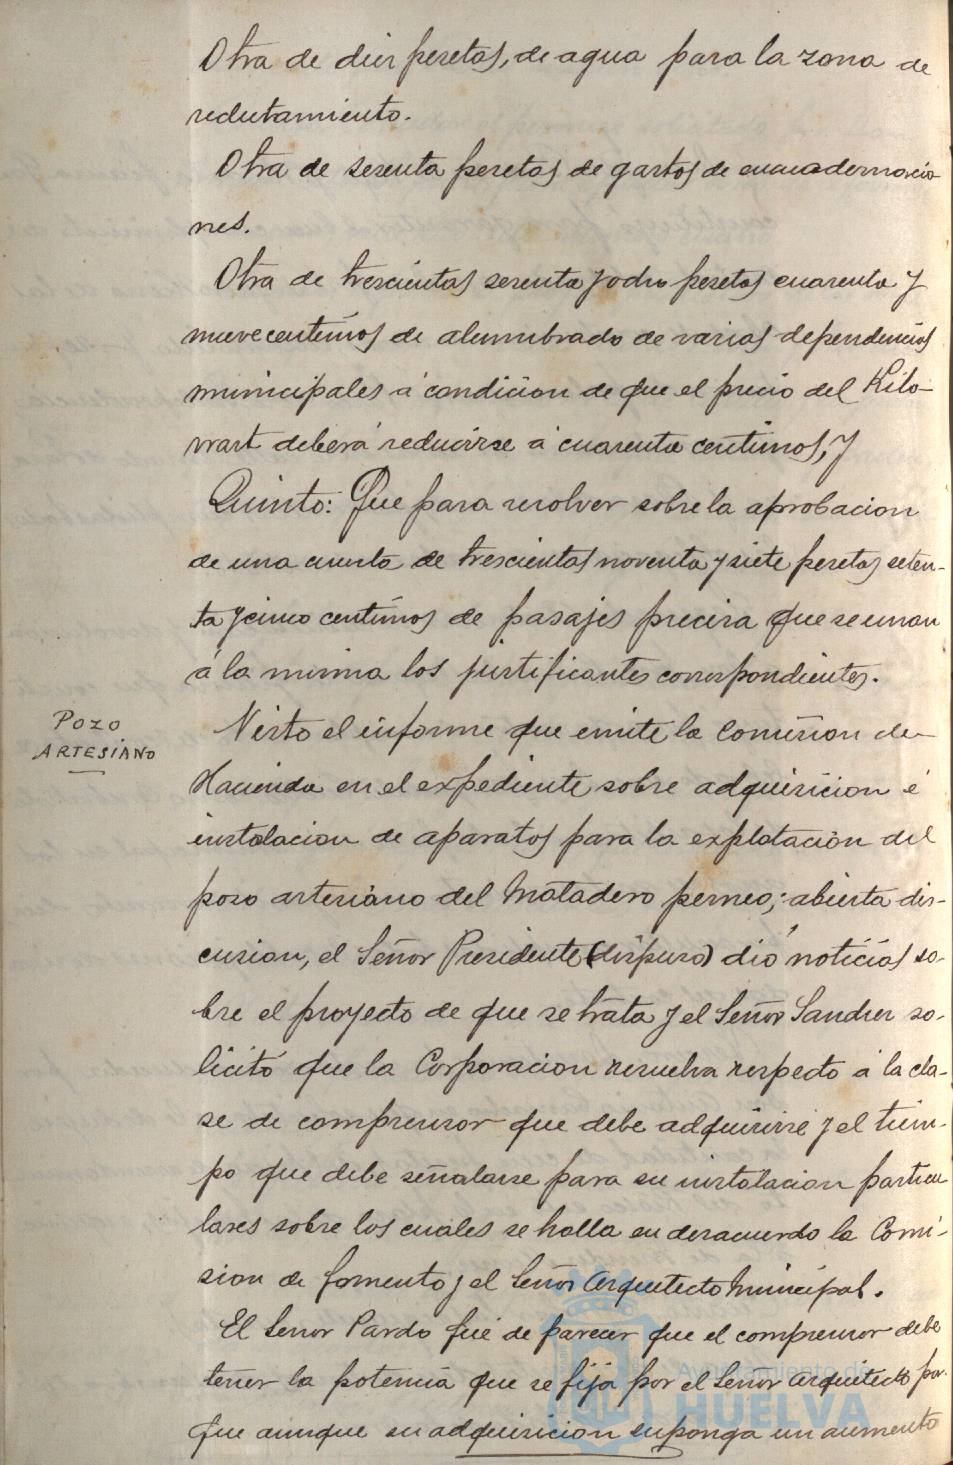 Otra de diez pesetas, de agua para la zona de
reclutamiento.
Otra de sesenta pesetas de gastos de encuadernacio
nes.
Otra de trescientas sesenta y ocho pesetas cuarenta y
nueve centimos de alumbrado de varias dependencias
municipales á condicion de que el precio del Kilo-
wart deberá reducirse á cuarenta centimos, y
Quinto: Que para resolver sobre la aprobacion
de una cuenta de trescientas noventa y siete pesetas seten-
ta y cinco centimos de pasajes precisa que se unan
á la misma los justificantes correspondientes.
POZO
ARTESIANO
Visto el informe que emite la Comision de
Hacienda en el expediente sobre adquisicion é
instalacion de aparatos para la explotación del
pozo artesiano del Matadero perneo; abierta dis-
cusion, el Señor Presidente (dispuso) dió noticias so-
bre el proyecto de que se trata y el Señor Sanchez so-
licitó que la Corporacion resuelva respecto á la cla-
se de compresor que debe adquirirse y el tiem-
po que debe señalarse para su instalacion particu
lares sobre los cuales se halla en desacuerdo la Comi-
sion de fomento y el Señor Arquitecto Municipal.
El Señor Pardo fué de parecer que el compresor debe
tener la potencia que se fija por el Señor Arquitecto por-
que aunque su adquisicion suponga un aumento
Ayuntamiento de
HUELVA